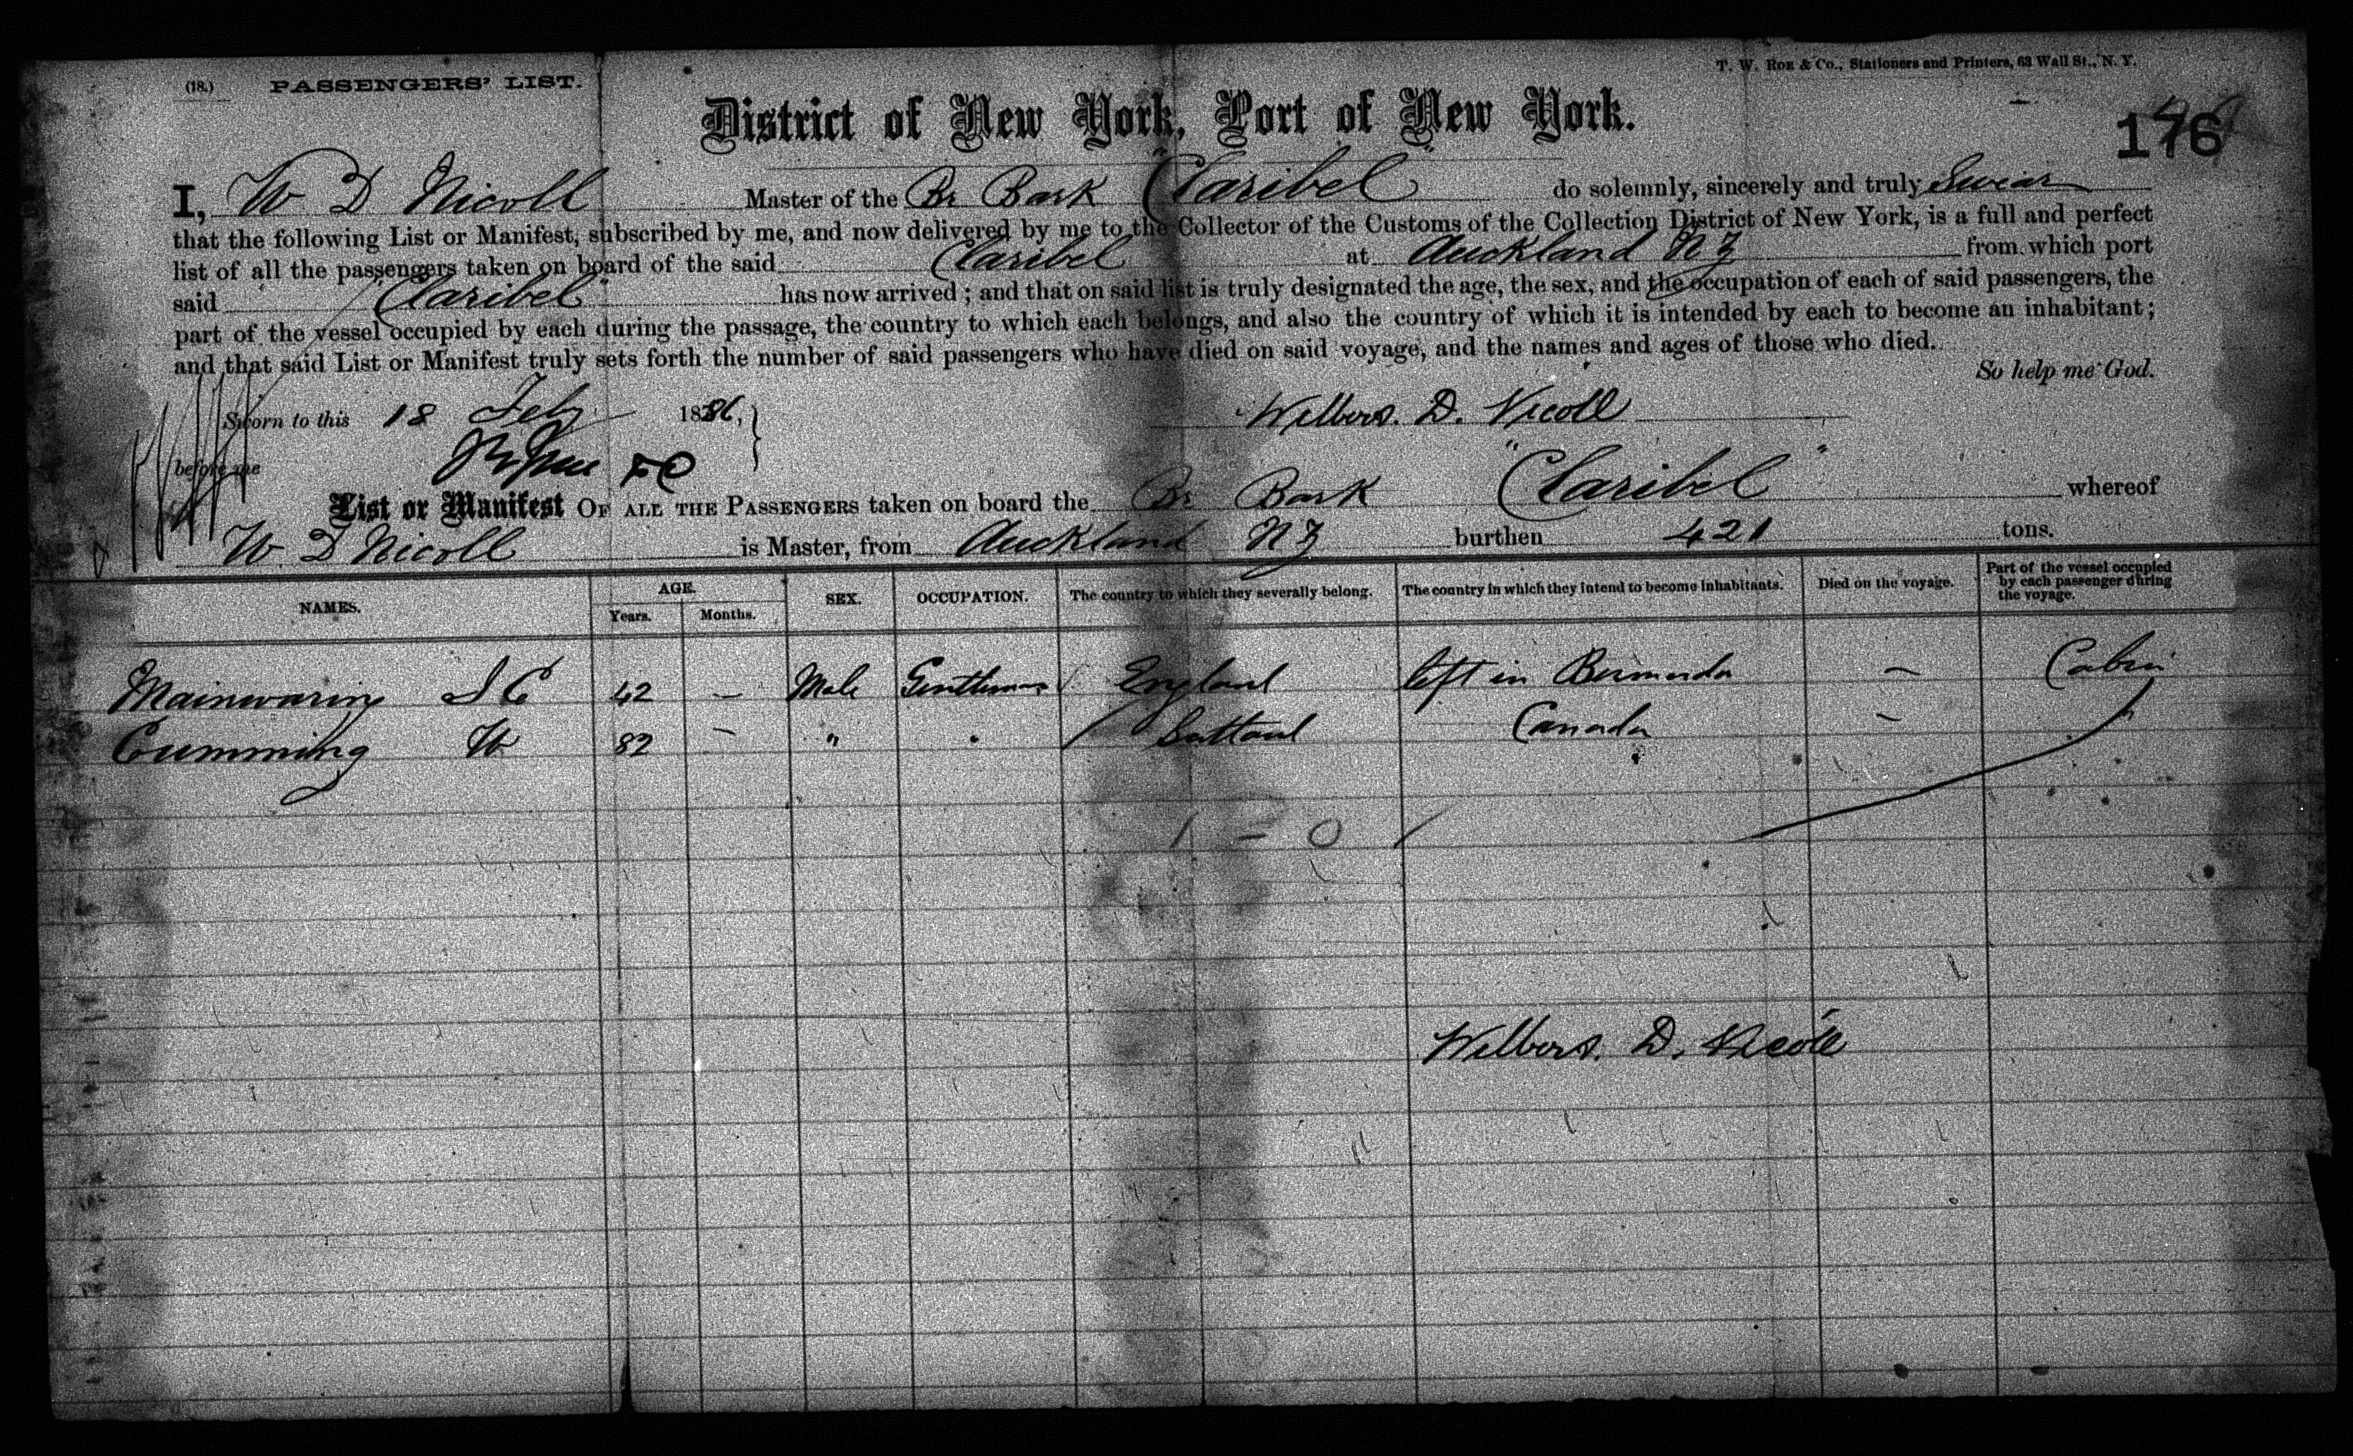 (18.) PASSENGERS' LIST.
T. W. Roe & Co., Stationers and Printers, 63 Wall St., N. Y.
District of New York, Port of New York.
176
I, W D Nicoll Master of the Br Bark "Claribel" do solemnly, sincerely and truly Swear
that the following List or Manifest, subscribed by me, and now delivered by me to the Collector of the Customs of the Collection District of New York, is a full and perfect
list of all the passengers taken on board of the said Claribel at Auckland N Z from which port
said "Claribel" has now arrived; and that on said list is truly designated the age, the sex, and the occupation of each of said passengers, the
part of the vessel occupied by each during the passage, the country to which each belongs, and also the country of which it is intended by each to become an inhabitant;
and that said List or Manifest truly sets forth the number of said passengers who have died on said voyage, and the names and ages of those who died.
So help me God.
Sworn to this 18 Feby 1886,
Wilbers. D. Nicoll
before me
List or Manifest OF ALL THE PASSENGERS taken on board the Br Bark "Claribel" whereof
W. D Nicoll is Master, from Auckland N Z burthen 421 tons.
NAMES. AGE. Years. Months. SEX. OCCUPATION. The country to which they severally belong. The country in which they intend to become inhabitants. Died on the voyage. Part of the vessel occupied by each passenger during the voyage.
Mainwaring 42 — Male Gentleman England left in Bermuda — Cabin
Cumming W 82 — " " Canada —
1 - 0
Wilbers. D. Nicoll